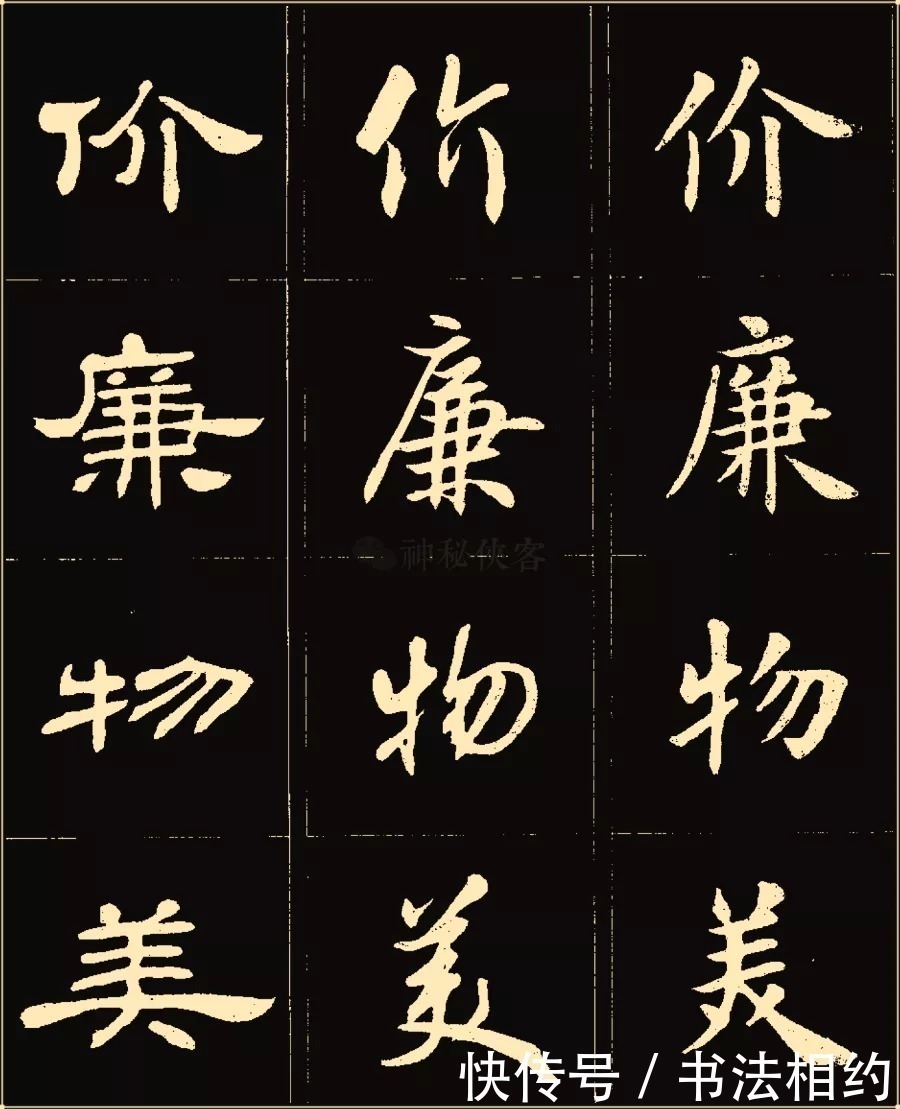 价 价 价
廉 廉 廉
神秘侠客
物 物 物
美 美 美
快传号 / 书法相约